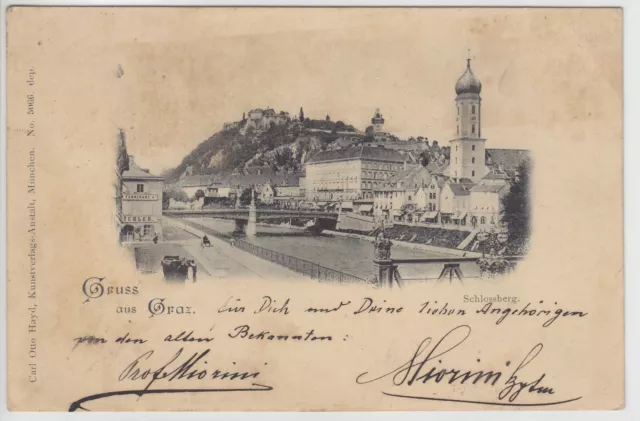 Carl Otto Hayd, Kunstverlags-Anstalt, München. No. 5066 dep.
Gruss
aus Graz.
Schlossberg.
für Dich und Deine lieben Angehörigen
von den alten Bekannten:
Prof Miorini
Miorini